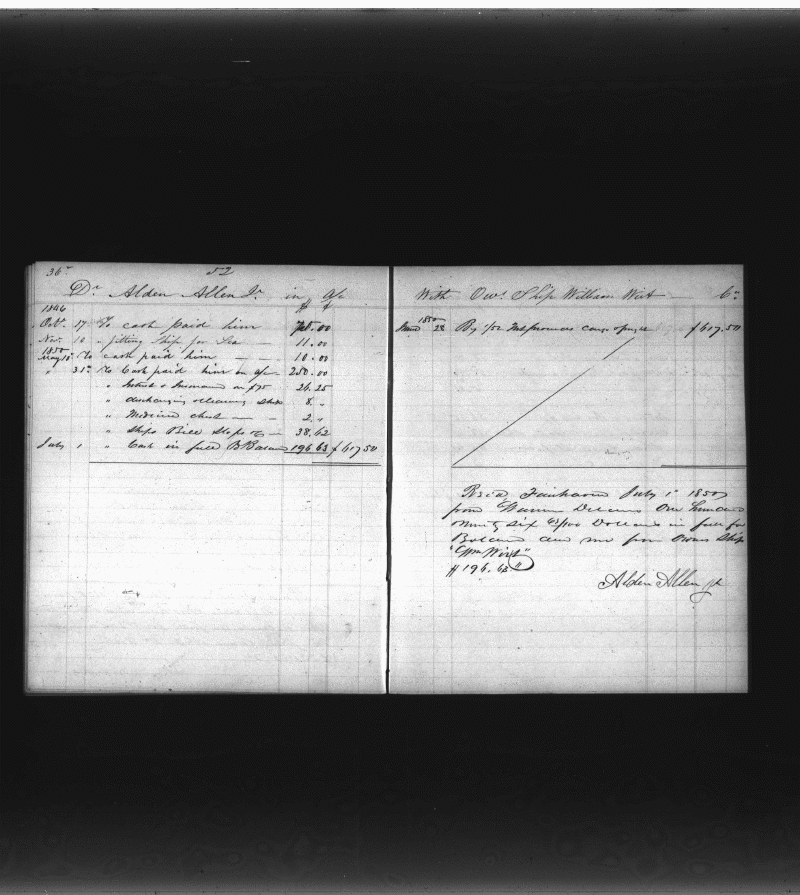 36
52
Dr Alden Allen Jr in a/c
$ ¢
1846
Octr 17 To cash paid him 75.00
Nov. 10 " fitting Ship for Sea 11.00
1850
May 18 To cash paid him 10.00
" 31st To Cash paid him on a/c 250.00
" Interest & Insurance on $75 26.25
" discharging & cleaning Ship 8. "
" Medicine chest 2. "
" Ships Bill Slops &c 38.62
July 1 " Cash in full 196 63 $617 50
With Ows Ship William Wirt Cr
1850
28 By $617.50
Recd, Fairhaven July 1st 1850
from Warren Delano One hundred
ninety six 63/100 Dollars in full for
Balance due me from Owners Ship
"Wm Wirt"
$196.63
Alden Allen Jr